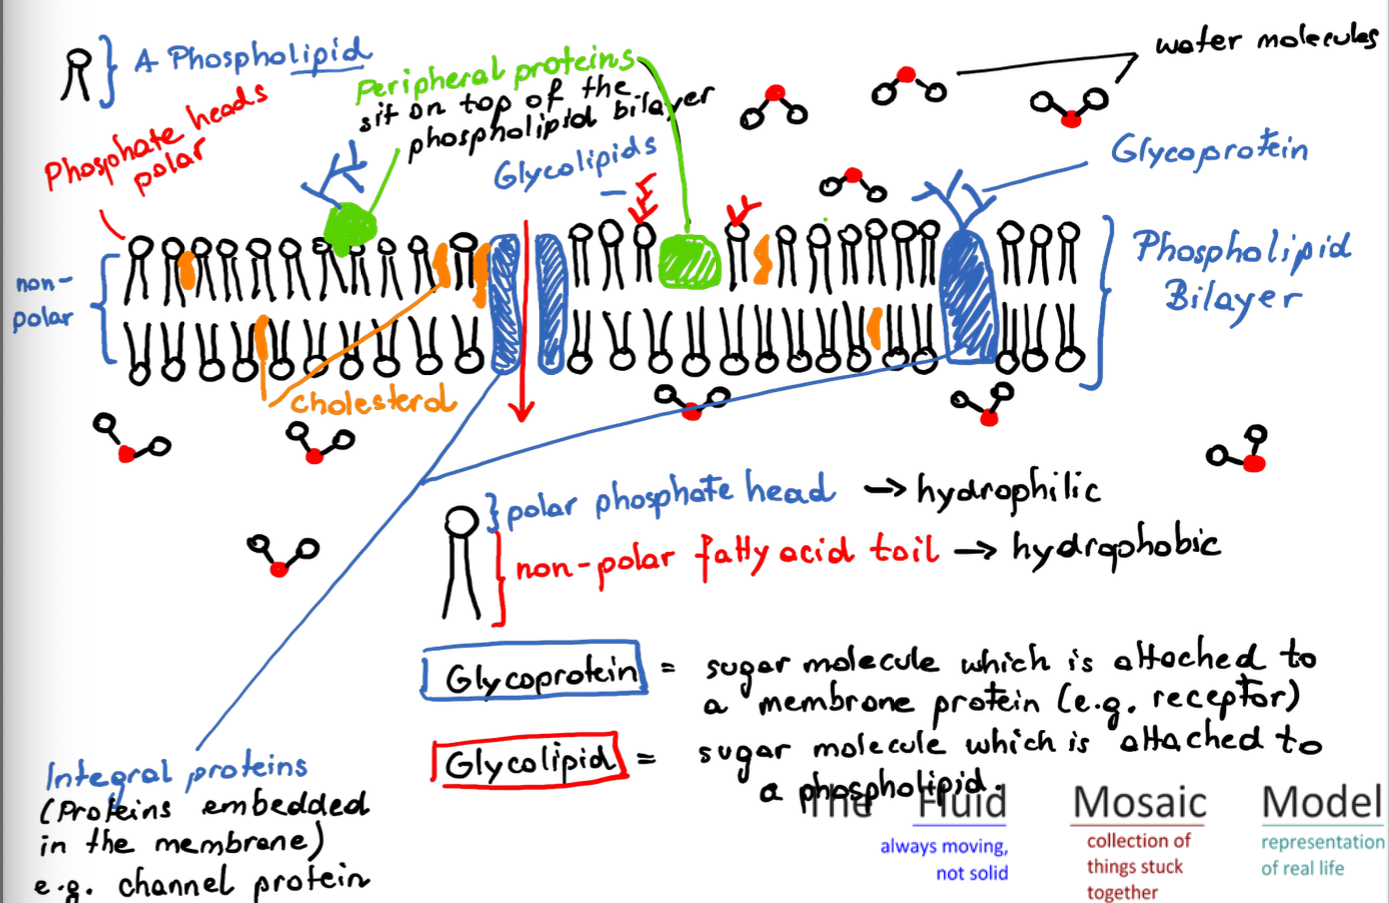 A Phospholipid
water molecules
Peripheral proteins
sit on top of the
phospholipid bilayer
Phosphate heads
polar
Glycolipids
Glycoprotein
non-
polar
Phospholipid
Bilayer
cholesterol
polar phosphate head → hydrophilic
non-polar fatty acid tail → hydrophobic
Glycoprotein = sugar molecule which is attached to
a membrane protein (e.g. receptor)
Glycolipid = sugar molecule which is attached to
a phospholipid.
Integral proteins
(Proteins embedded
in the membrane)
e.g. channel protein
The Fluid Mosaic Model
always moving,
not solid
collection of
things stuck
together
representation
of real life